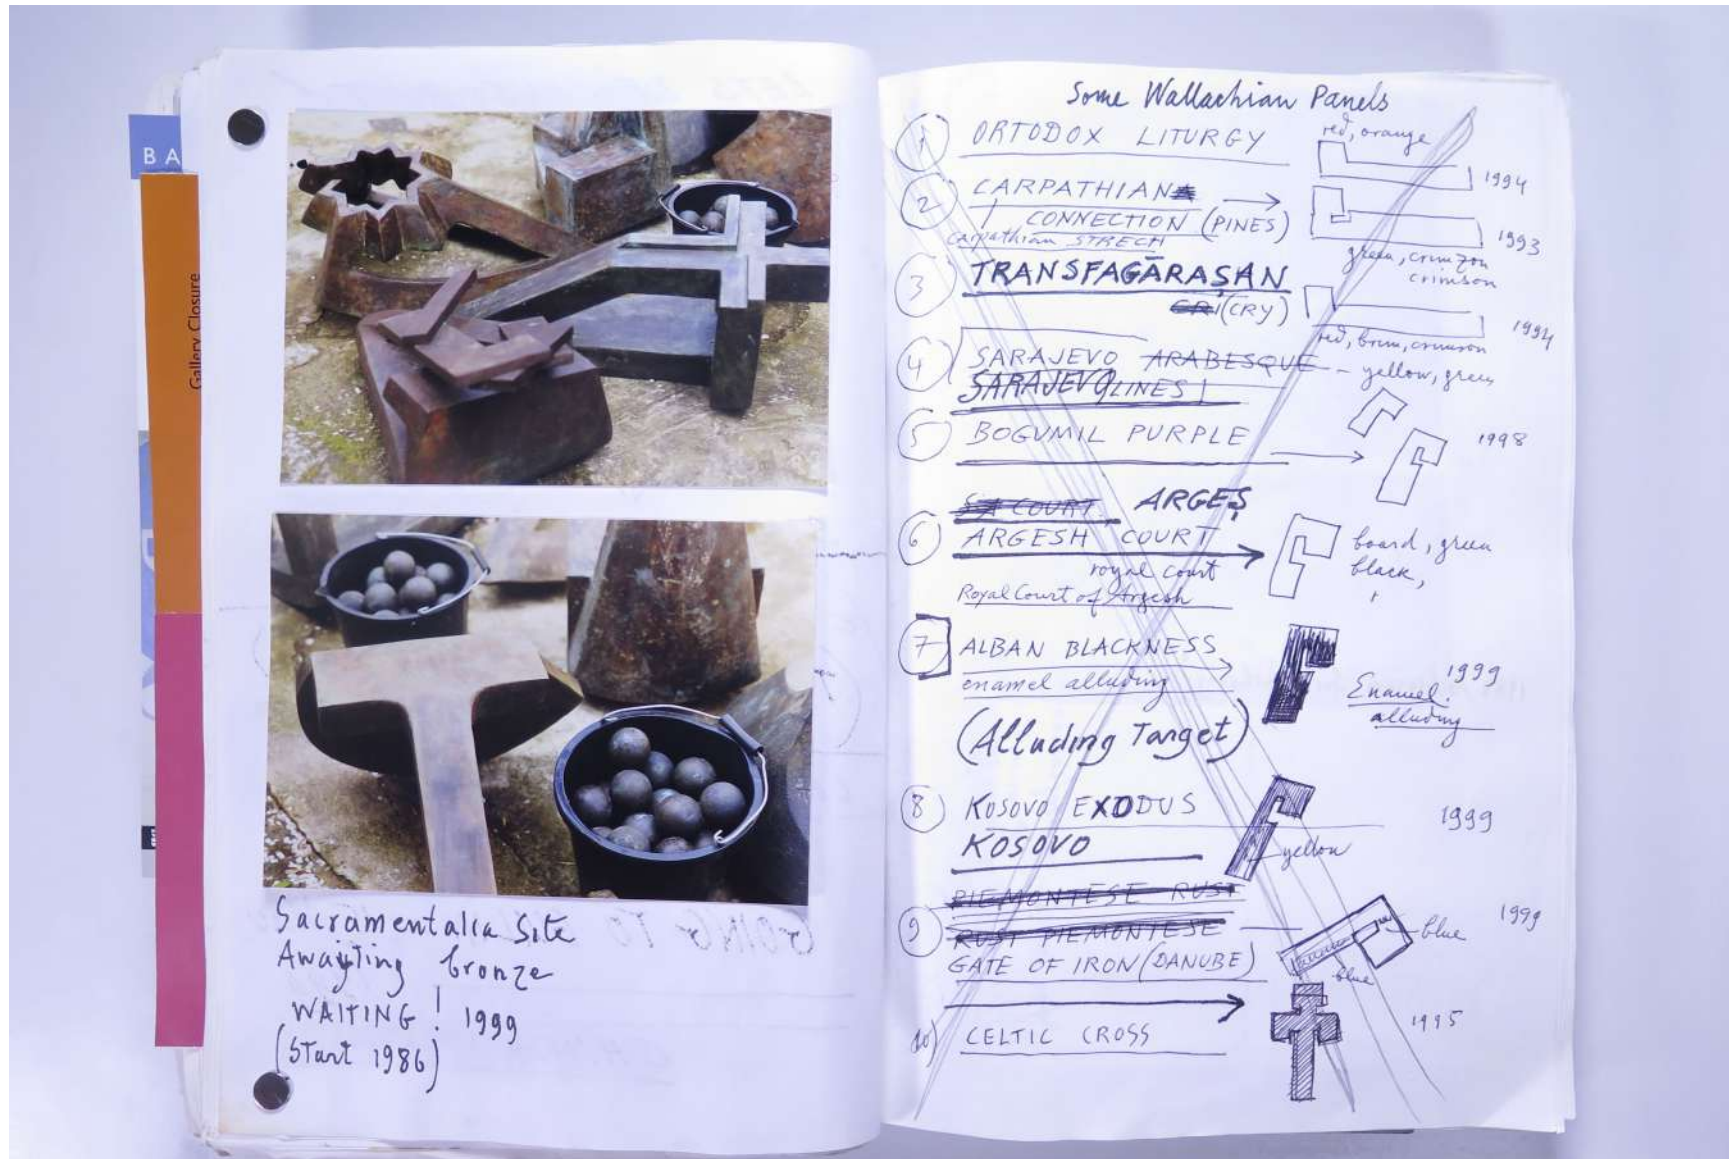 BA
Gallery Closure
Sacramentalia Site
Awaiting bronze
WAITING! 1999
(Start 1986)
GOING TO
Some Wallachian Panels
1 ORTODOX LITURGY
red, orange
1994
2 CARPATHIAN
CONNECTION (PINES)
Carpathian STRECH
1993
green, crimzon
crimson
3 TRANSFAGĂRAȘAN
CRI (CRY)
1994
red, brun, crimson
4 SARAJEVO ARABESQUE - yellow, green
SARAJEVO LINES
5 BOGUMIL PURPLE
1998
COURT ARGEȘ
6 ARGESH COURT
royal court
Royal Court of Argesh
board, green
black,
7 ALBAN BLACKNESS
enamel alluding
1999
Enamel.
alluding
(Alluding Target)
8 KOSOVO EXODUS
1999
KOSOVO
yellow
PIEMONTESE RUST
9 RUST PIEMONTESE
1999
blue
GATE OF IRON (DANUBE)
blue
10) CELTIC CROSS
1995